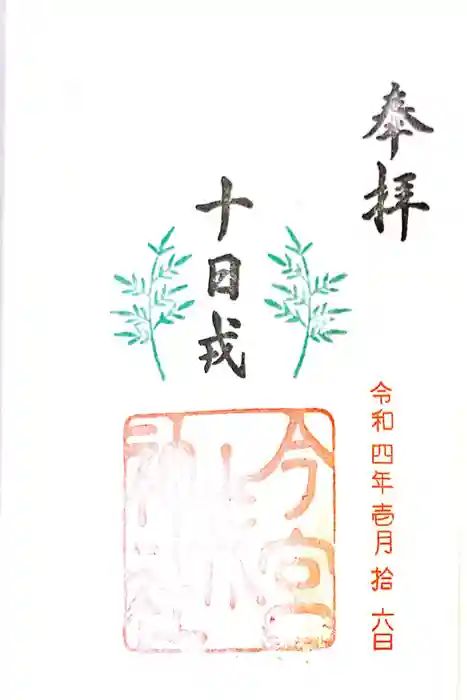 奉拝
十日戎
令和四年壱月拾六日
今宮
戎
神社